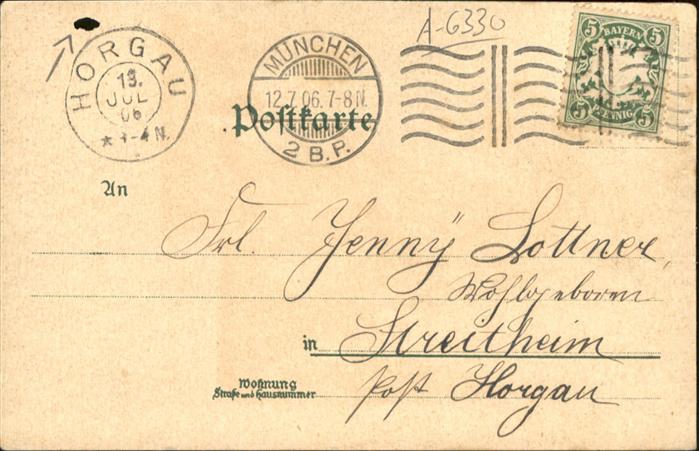 A-6330
HORGAU
13.
JUL
06
MÜNCHEN
12.7.06.7-8N.
2 B.P.
5 5
BAYERN
PFENNIG
5 5
Postkarte
An
Frl. Jenny Lottner,
Wohlgeboren
in Streitheim
Wohnung
Straße und Hausnummer
Post Horgau